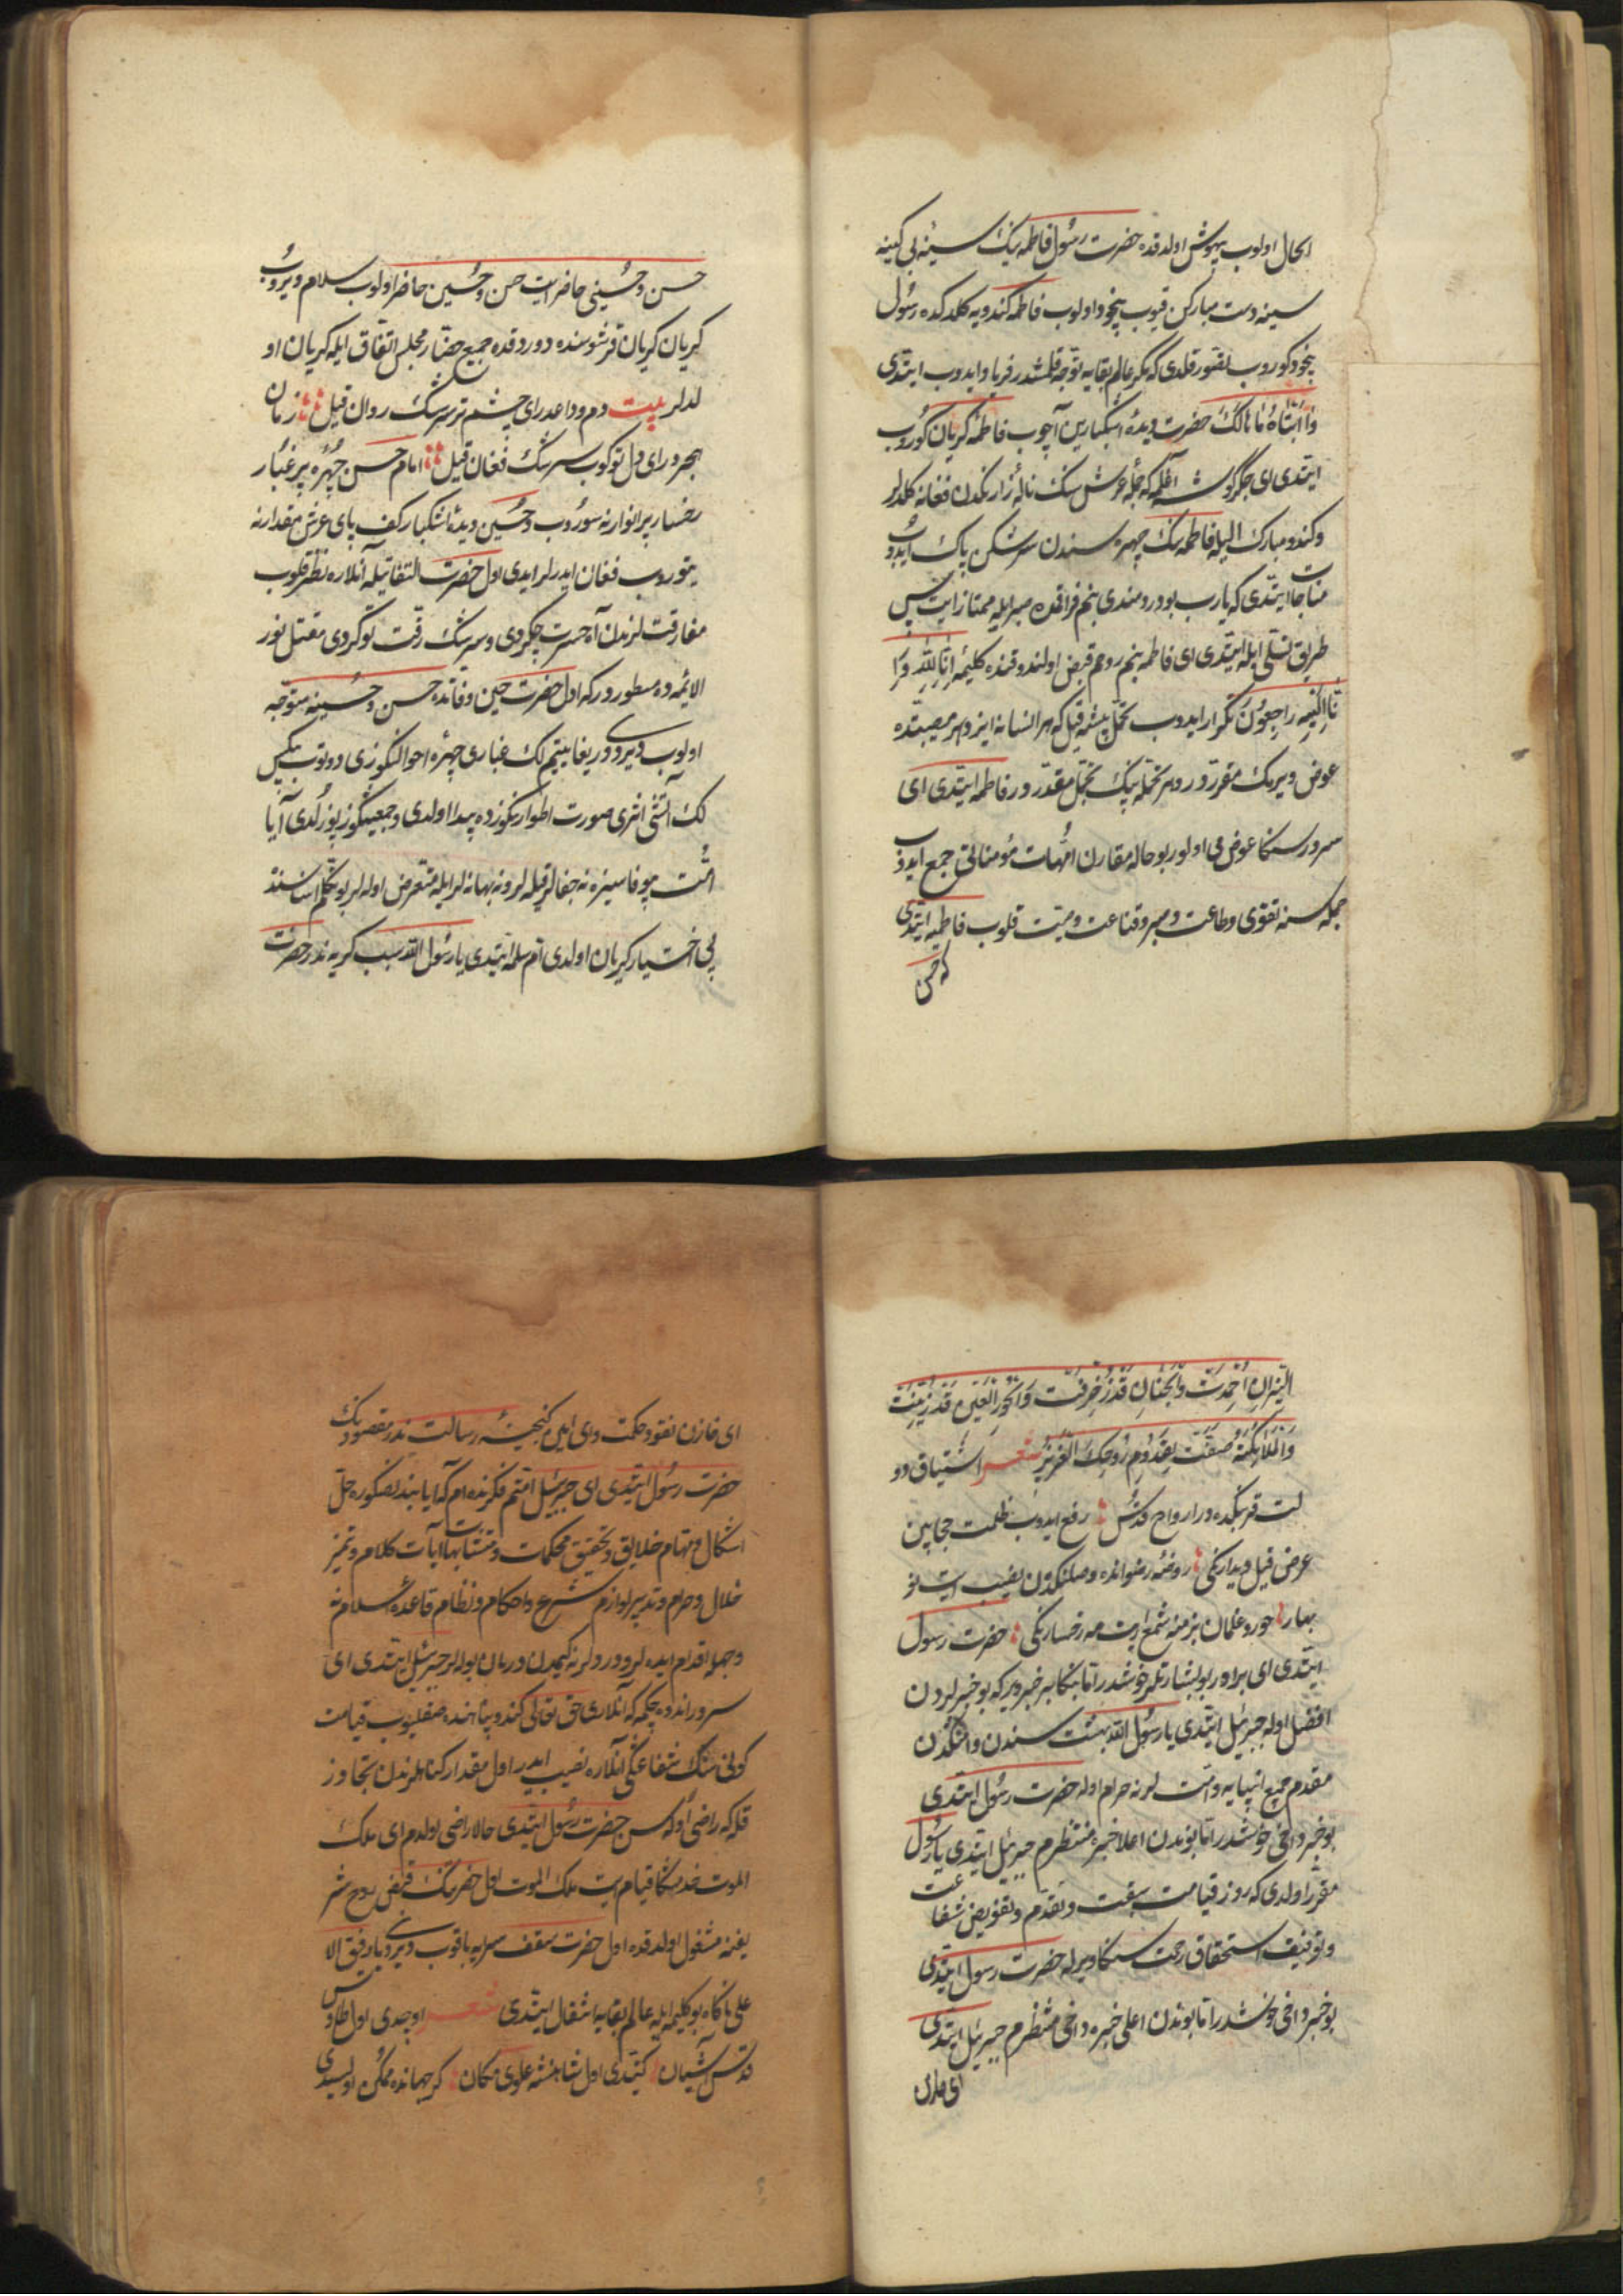 الحال اولوب بیهوش اولدقده حضرت رسول فاطمه نیك سینهٔ بی کینه
سینه دست مبارکن قیوب بیخود اولوب فاطمه کندویه کلدکده رسول
بیخود کوروب تصور قلدی که مکر عالم بقایه توجه قلمشدر فریاد ایدوب ایتدی
وا ابتاه مالك حضرت دیدهٔ اشکبارین آچوب فاطمهٔ کریان کوروب
ایتدی ای جکرکوشه اغلمه که جملهٔ عرش سنك نالهٔ زارنکدن فغانه کلدلر
وکندو مبارك الیله فاطمه نك چهره سندن سرشکن پاك ایدوب
مناجات ایتدی که یارب بو دردمندی بنم فراقمده صبر ایله ممتاز ایت پس
طریق تسلی ایله ایتدی ای فاطمه بنم روحم قبض اولندوقنده کلیمهٔ اِنّا لِلّهِ وَاِ
نّا اِلَیْهِ راجِعُونَ تکرار ایدوب تحمل پیشه قیل که هر انسانه ایزد هر مصیبتده
عوض ویرمك مقرردر و هر تحمله بیك تجمل مقدردر فاطمه ایتدی ای
سرور سنکا عوض می اولور بو حاله مقارن امهات مؤمنانی جمع ایدوب
جمله سنه تقوی وطاعت وصبر وقناعت وصیت قلوب فاطمیه ایتدی
که حسن
حسن وحسینی حاضر ایت حسن وحسین حاضر اولوب سلام ویروب
کریان کریان قرشوسنده دوردقده جمیع حضار مجلس اتفاق ایله کریان او
لدلر بیت دم وداعدر ای چشم تر سرشك روان قیل زمان
هجردر ای دل توکوب سرشك فغان قیل امام حسن چهرهٔ پر غبار
رخسار پر انوارنه سوروب وحسین دیدهٔ اشکبار کف پای عرش مقدارنه
یتوروب فغان ایدرلر ایدی اول حضرت التفاتیله آنلاره نظر قلوب
مفارقت لرندن آه حسرت چکردی وسرشك رقت توکردی مقتل نور
الائمه ده مسطوردر که اول حضرت حین وفاتده حسن وحسینه متوجه
اولوب دیردی دریغا یتیم لك غباری چهرهٔ احوالنکوزی دوتوب بیکس
لك آتشی اثری صورت اطوارنکوزده پیدا اولدی وجمعیتکوز پوزلدی آیا
امت بیوفا سیزه نه جفالر قیله لر ونه بهانه لر ایله متعرض اوله لر بو تکلم اثناسنده
بی اختیار کریان اولدی ام سلمه ایتدی یا رسول الله سبب کریه ندر حضرت
النیران اُخمدت والجنان قد زُخرفت والحور العین قد زُیّنت
والملائکة صفّت بقدوم روحك العزیز شعر اشتیاق دو
لت قربکده در ارواح قدس رفع ایدوب ظلمت حجابین
عرض قیل دیدارنکی روضهٔ رضوانده وصلنکدن نصیب ایت نو
بهار حور وغلمان بزمنه شمع ایت مه رخسارنکی حضرت رسول
ایتدی ای برادر بو بشارتلر خوشدر اما بنکا بر خبر ویر که بو خبرلردن
افضل اوله جبرئیل ایتدی یا رسول الله بهشت سندن وامتکدن
مقدم جمیع انبیایه وامت لرنه حرام اوله حضرت رسول ایتدی
بو خبر داخی خوشدر اما بوندن اعلا خبره منتظرم جبرئیل ایتدی یا رسول
مقرر اولدی که روز قیامت سبقت وتقدم وتفویض شفاعت
وتوفیق استحقاق رحمت سنکا ویریله حضرت رسول ایتدی
بو خبر داخی خوشدر اما بوندن اعلی خبره داخی منتظرم جبرئیل ایتدی
ای خازن
ای خازن نقود حکمت وای امین کنجینهٔ رسالت ندر مقصودنك
حضرت رسول ایتدی ای جبرئیل امتم فکرنده ام که آیا بندن صکوره حل
اشکال ومهام خلایق وتحقیق محکمات ومتشابهات آیات کلام وتمیز
حلال وحرام وتدبیر لوازم شرع واحکام ونظام قاعدهٔ اسلامه نه
وجهله اقدام ایده لر ودردلرنه کیمدن درمان بوله لر جبرئیل ایتدی ای
سرور اندوه چکمه که آنلاری حق تعالی کندو پناهنده صقلیوب قیامت
کونی سنك شفاعتکی آنلاره نصیب ایدر اول مقدار کناهلرندن تجاوز
قله که راضی اوله سن حضرت رسول ایتدی حالا راضی اولدم ای ملك
الموت خدمتکا قیام ایت ملك الموت اول حضرتنك قبض روح شر
یفنه مشغول اولدقده اول حضرت سقف سرایه باقوب دیردی یا رفیق الا
علی ناکاه بو کلیمه ایله عالم بقایه انتقال ایتدی شعر اوچدی اول طاوس
قدس آشیان کیتدی اول شاهنشه علوی مکان کر جهانده ممکن اولسیدی